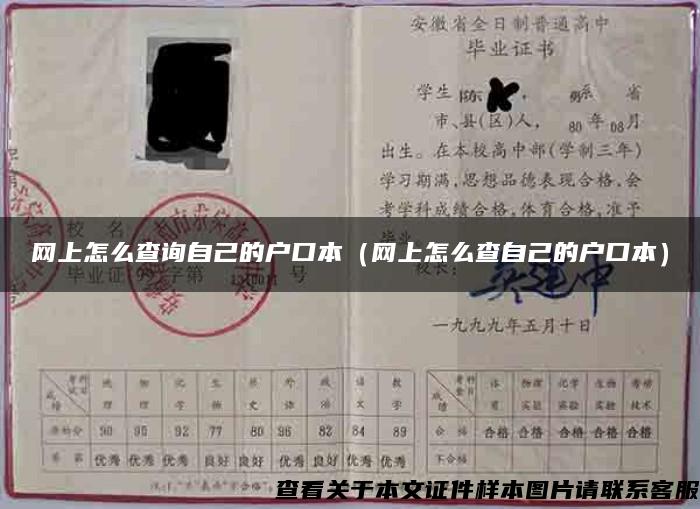 安徽省全日制普通高中
毕业证书
学生 陈 , 男系 省
市、县(区)人, 80年08月
出生。在本校高中部(学制三年)
学习期满,思想品德表现合格,会
考学科成绩合格,体育合格,准予
毕业。
校 名
网上怎么查询自己的户口本（网上怎么查自己的户口本）
毕业证 字第 号
校长:
一九九九年五月十日
考试 科目 地理 物理 化学 生物 历史 外语 政治 语文 数学
成绩
原始分 90 95 92 77 80 96 82 84 89
等第 优秀 优秀 优秀 良好 良好 优秀 良好 优秀 优秀
考查 科目 体育 物理实验 化学实验 生物实验 劳动技术
成绩
合格 合格 合格 合格 合格 合格
不合格
查看关于本文证件样本图片请联系客服